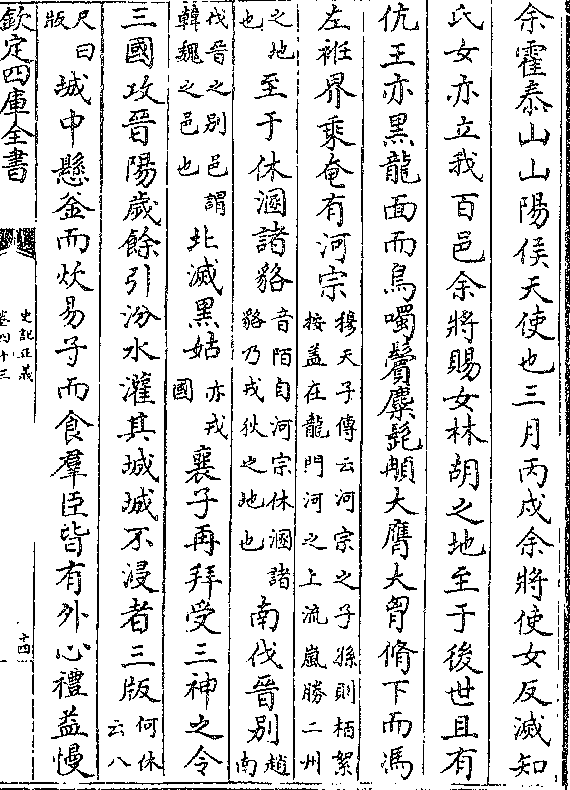 余霍泰山山陽侯天使也三月丙戌余將使女反滅知
氏女亦立我百邑余將賜女林胡之地至于後世且有
伉王亦黑龍面而鳥噣鬢麋髭䫇大膺大胷脩下而馮
左袵界乗奄有河宗穆天子傳云河宗之子孫則栢絮
按盖在龍門河之上流嵐勝二州
之地
也
至于休溷諸貉音陌自河宗休溷諸
貉乃戎狄之地也
南伐晉别趙南
伐晉之别邑謂
韓魏之邑也
北滅黑姑亦戎
國
襄子再拜受三神之令
三國攻晉陽歲餘引汾水灌其城城不浸者三版何休
云八
尺曰
版
城中懸釡而炊易子而食羣臣皆有外心禮益慢
欽定四庫全書
史記正義
卷四十三
十四